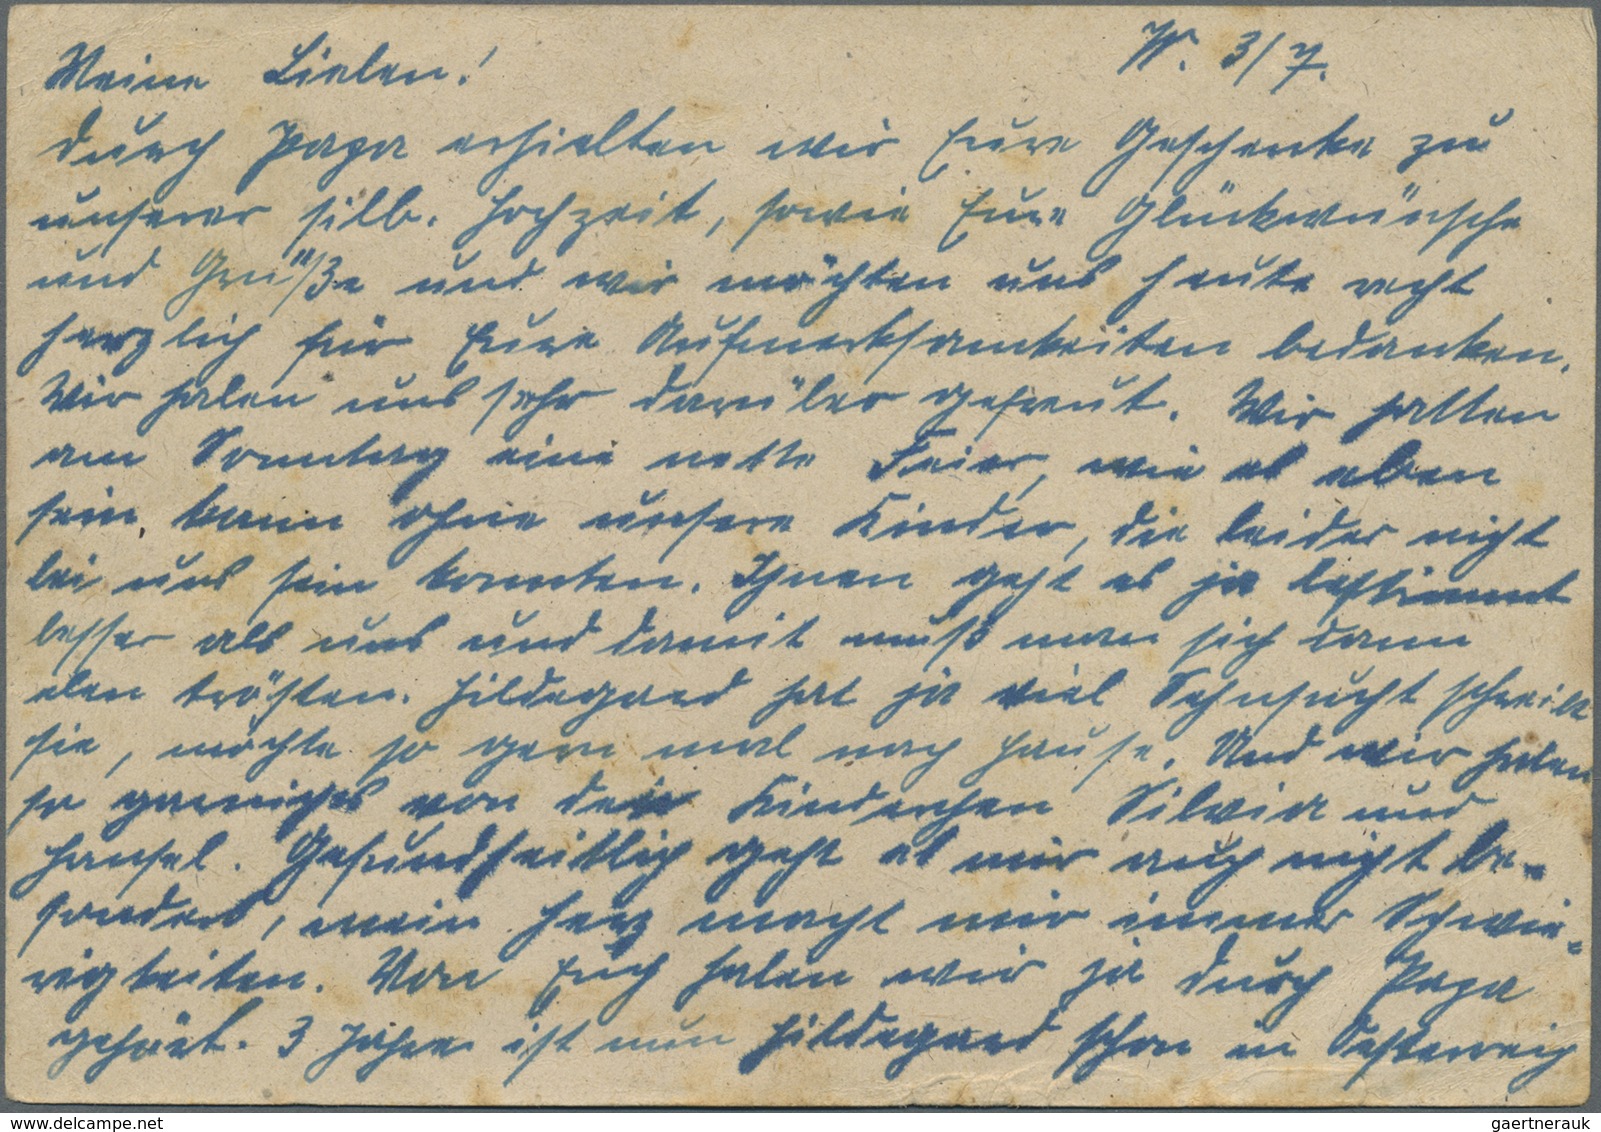 Meine Lieben! W. 3/7.
durch Papa erhielten wir Eure Geschenke zu
unserer silb. Hochzeit, sowie Eure Glückwünsche
und Grüße und wir möchten uns heute recht
herzlich für Eure Aufmerksamkeiten bedanken.
Wir haben uns sehr darüber gefreut. Wir hatten
am Sonntag eine nette Feier, wie es eben
sein kann ohne unsere Kinder, die leider nicht
bei uns sein konnten. Ihnen geht es ja bestimmt
besser als uns und damit muß man sich dann
eben trösten. Hildegard hat ja viel Sehnsucht schreibt
sie, möchte so gern mal nach Hause. Und wir haben
so von den Kinderchen Silvia und
Hansel. Gesundheitlich geht es mir auch nicht be-
sonders, mein Herz macht mir immer Schwie-
rigkeiten. Von Euch haben wir ja durch Papa
gehört. 3 Jahre ist nun Hildegard schon in Oesterreich
gaertnerauk @ delcampe.net